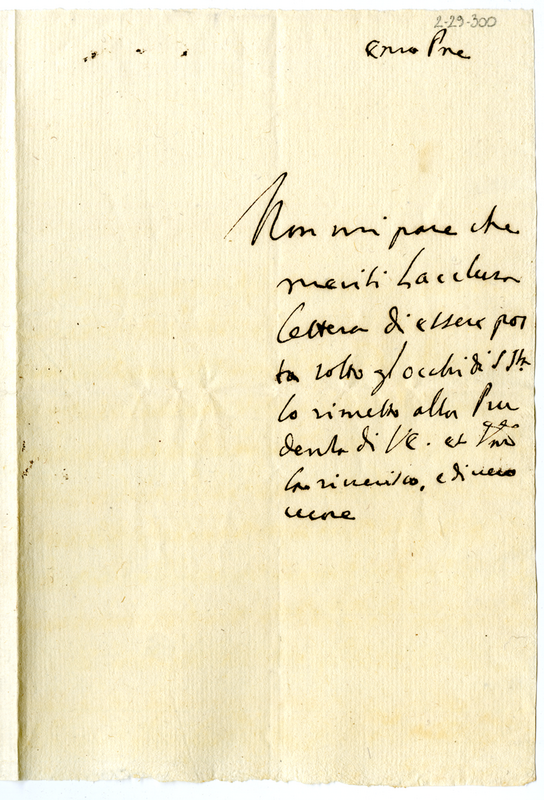 2-29-300
Emo Pne
Non mi pare che
meriti L'acclusa
lettera di essere pos
ta sotto gl'occhi di S Stà
lo rimetto alla Pru
denza di VE. et
la riverisco, e di vero
cuore